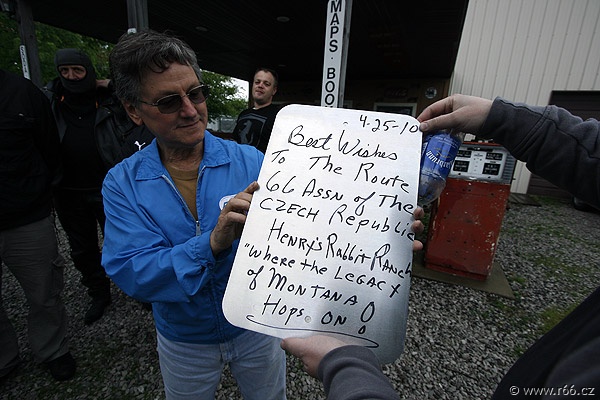 MAPS · BOO
4-25-10
Best Wishes
To The Route
66 Assn of The
CZECH Republic
HENRY'S Rabbit RANCH
"Where the LEGACY
of MONTANA
Hops ON!
© www.r66.cz